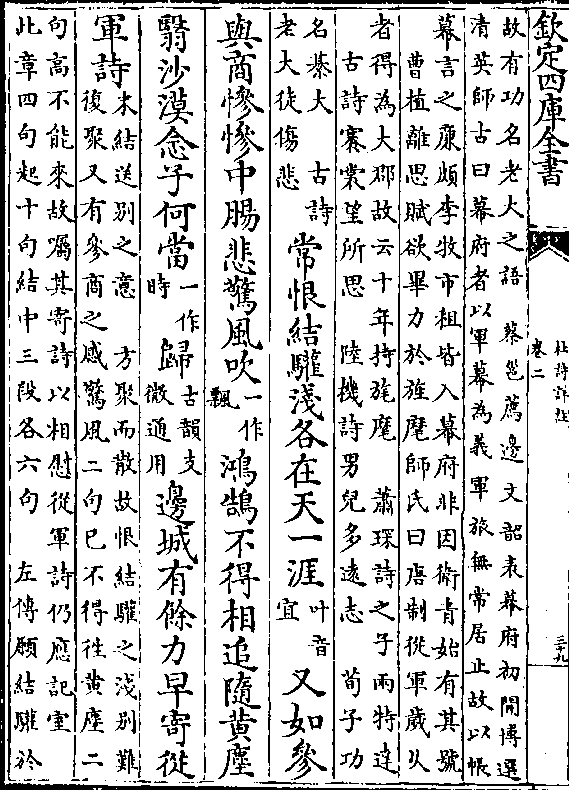 欽定四庫全書
杜詩詳註
卷二
三十九
故有功名老大之語　蔡邕薦邊文韶表幕府初開博選
清英師古曰幕府者以軍幕為義軍旅無常居止故以帳
幕言之廉頗李牧市租皆入幕府非因衛青始有其號
曹植離思賦欲畢力於旌麾師氏曰唐制從軍歲久
者得為大郡故云十年持旄麾　蕭琛詩之子兩特達
古詩褰裳望所思　陸機詩男兒多遠志　荀子功
名綦大　古詩
老大徒傷悲
常恨結驩淺各在天一涯叶音宜又如參
與商慘慘中腸悲驚風吹一作飄鴻鵠不得相追隨黄塵
翳沙漠念子何當一作時歸古韻支微通用邊城有餘力早寄從
軍詩末結送别之意　方聚而散故恨結驩之淺别難
復聚又有參商之感驚風二句已不得往黄塵二
句高不能來故囑其寄詩以相慰從軍詩仍應記室
此章四句起十句結中三段各六句　左傳願結驩於